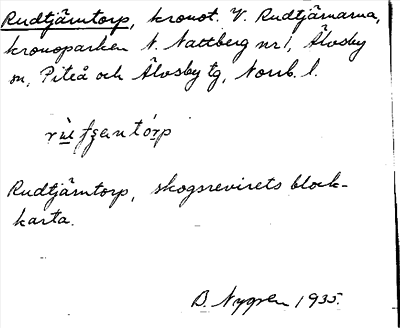 Rudtjärntorp, kronot. V. Rudtjärnarna,
kronoparken N. Nattberg nr 1, Älvsby
sn, Piteå och Älvsby tg, Norrb. l.
Rudtjärntorp, skogsrevirets block-
karta.
B. Nygren 1935.